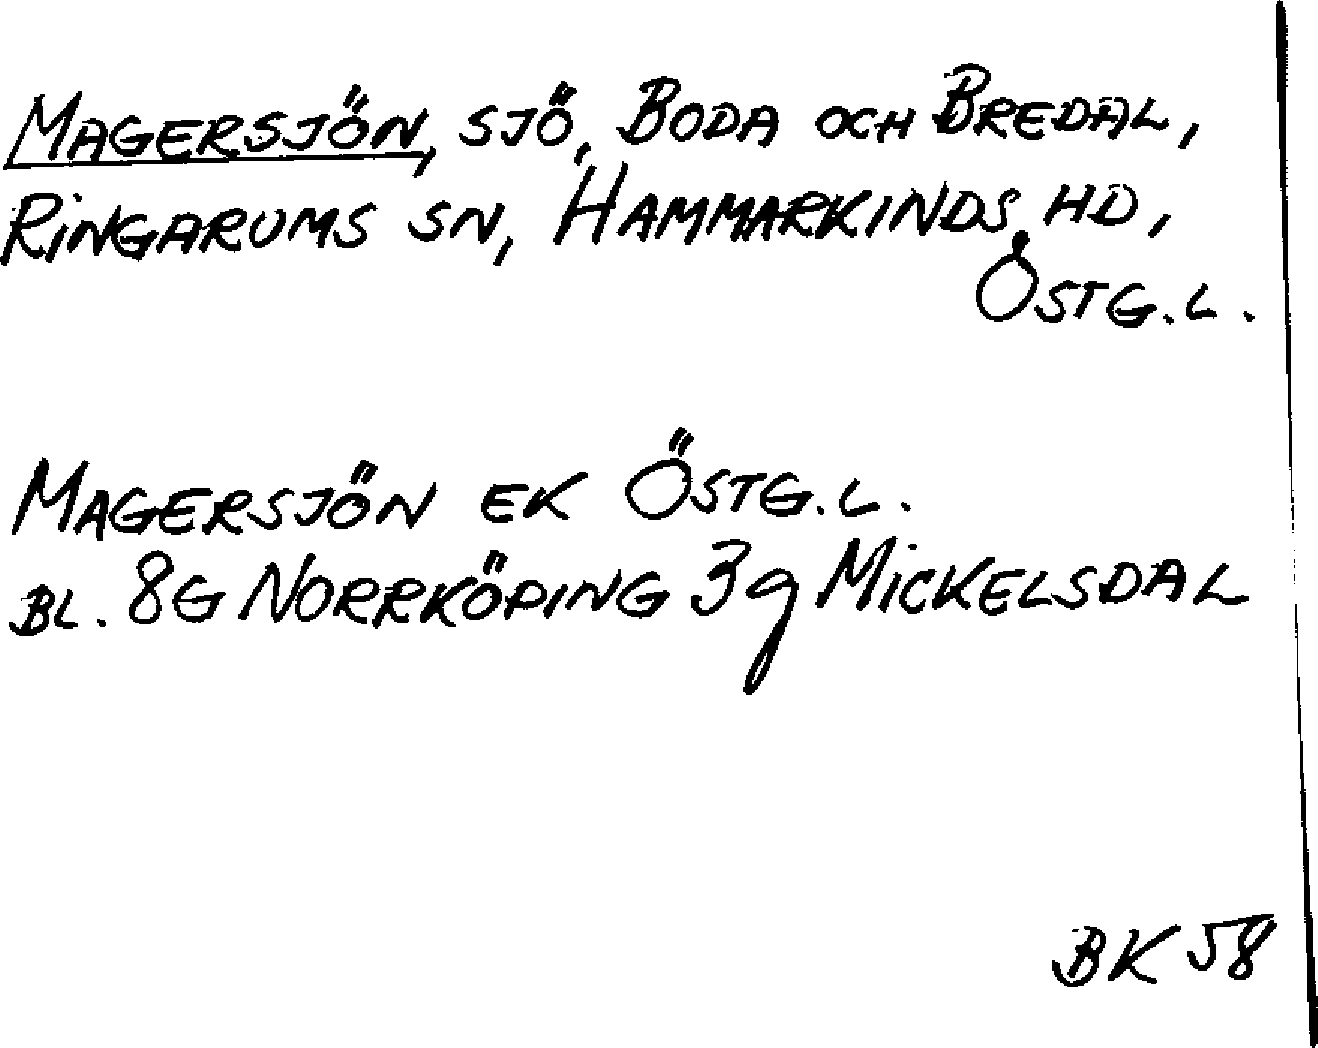 MAGERSJÖN, SJÖ, BODA OCH BREDAL,
RINGARUMS SN, HAMMARKINDS HD,
ÖSTG.L.
MAGERSJÖN EK ÖSTG.L.
BL. 8G NORRKÖPING 3g MICKELSDAL
BK 58